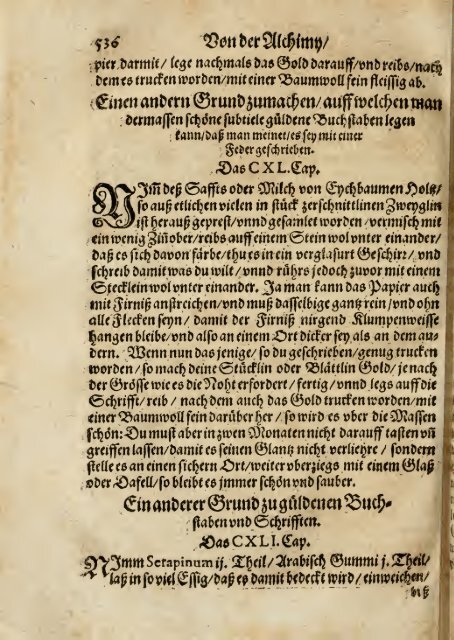 536 Von der Alchimy/
pier darmit/ lege nachmals das Gold darauff/vnd reibs/nach
dem es trucken worden/mit einer Baumwoll fein fleissig ab.
Einen andern Grund zumachen/ auff welchen man
dermassen schöne subtiele güldene Buchstaben legen
kann/daß man meinet/es sey mit einer
Feder geschrieben.
Das CXL. Cap.
NIm̃ deß Saffts oder Milch von Eychbaumen Holtz/
so auß etlichen vielen in stück zerschnittlinen Zweyglin
ist herauß geprest/vnnd gesamlet worden/vermisch mit
ein wenig Zinober/reibs auff einem Stein wol vnter einander/
daß es sich davon färbe/thu es in ein verglasurt Geschirr/vnd
schreib damit was du wilt/vnnd rührs jedoch zuvor mit einem
Stecklein wol vnter einander. Ja man kann das Papier auch
mit Firniß anstreichen/vnd muß dasselbige gantz rein/vnd ohn
alle Flecken seyn/ damit der Firniß nirgend Klumpenweisse
hangen bleibe/vnd also an einem Ort dicker sey als an dem an-
dern. Wenn nun das jenige/so du geschrieben/genug trucken
worden/so mach deine Stücklin oder Blättlin Gold/je nach
der Grösse wie es die Noht erfordert/fertig/vnnd legs auff die
Schrifft/reib/ nach dem auch das Gold trucken worden/mit
einer Baumwoll fein darüber her/ so wird es vber die Massen
schön: Du must aber in zwen Monaten nicht darauff tasten vñ
greiffen lassen/damit es seinen Glantz nicht verliehre/ sondern
stelle es an einen sichern Ort/weiter vberziegs mit einem Glaß
oder Dafell/so bleibt es jmmer schön vnd sauber.
Ein anderer Grund zu güldenen Buch-
staben vnd Schrifften.
Das CXLI. Cap.
NImm Serapinum ij. Theil/Arabisch Gummi j. Theil/
laß in so viel Essig/daß es damit bedeckt wird/einweichen/
biß